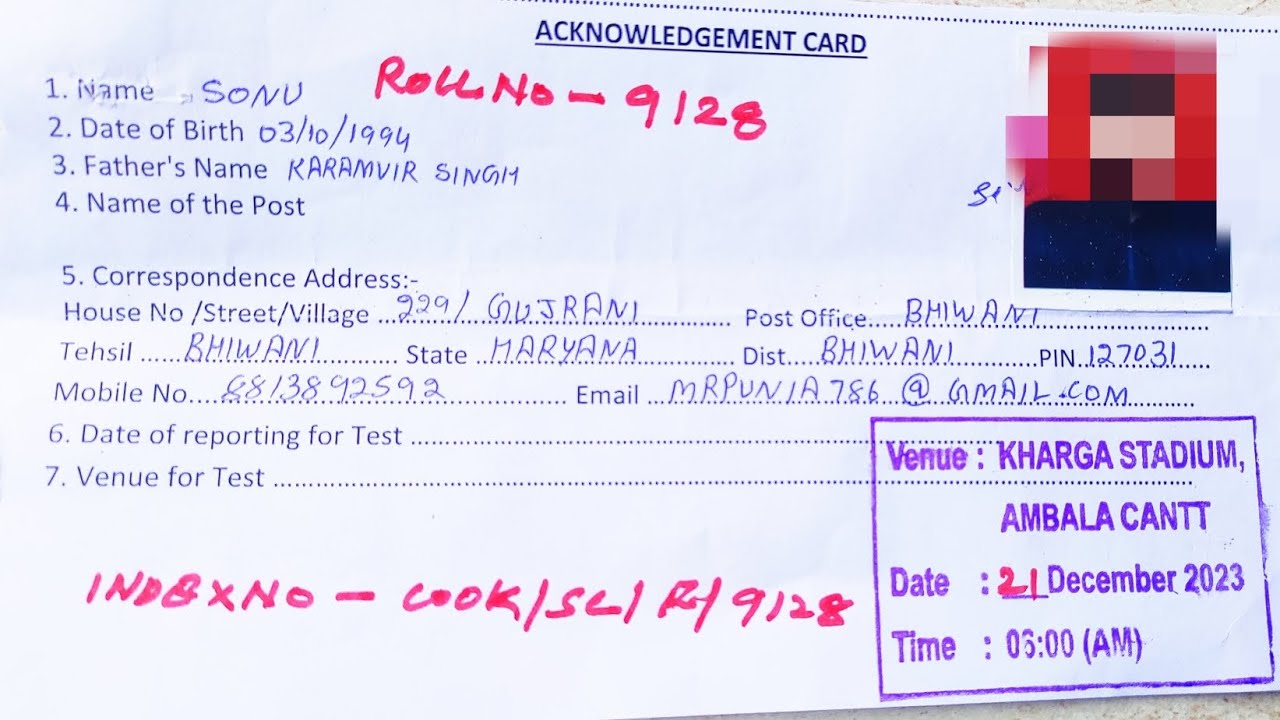 ACKNOWLEDGEMENT CARD
1. Name SONU
ROLL NO - 9128
2. Date of Birth 03/10/1994
3. Father's Name KARAMVIR SINGH
4. Name of the Post
5. Correspondence Address:-
House No /Street/Village ...229/ GUJRANI............... Post Office.....BHIWANI.......................
Tehsil ......BHIWANI............ State ..HARYANA................ Dist....BHIWANI............PIN.127031....
Mobile No....8813892592.................. Email ...MRPUNIA786@GMAIL.COM..........
6. Date of reporting for Test ................................................................
7. Venue for Test ................................................................................
INDEX NO - COOK/SC/ R/ 9128
Venue : KHARGA STADIUM,
AMBALA CANTT
Date : 21 December 2023
Time : 06:00 (AM)